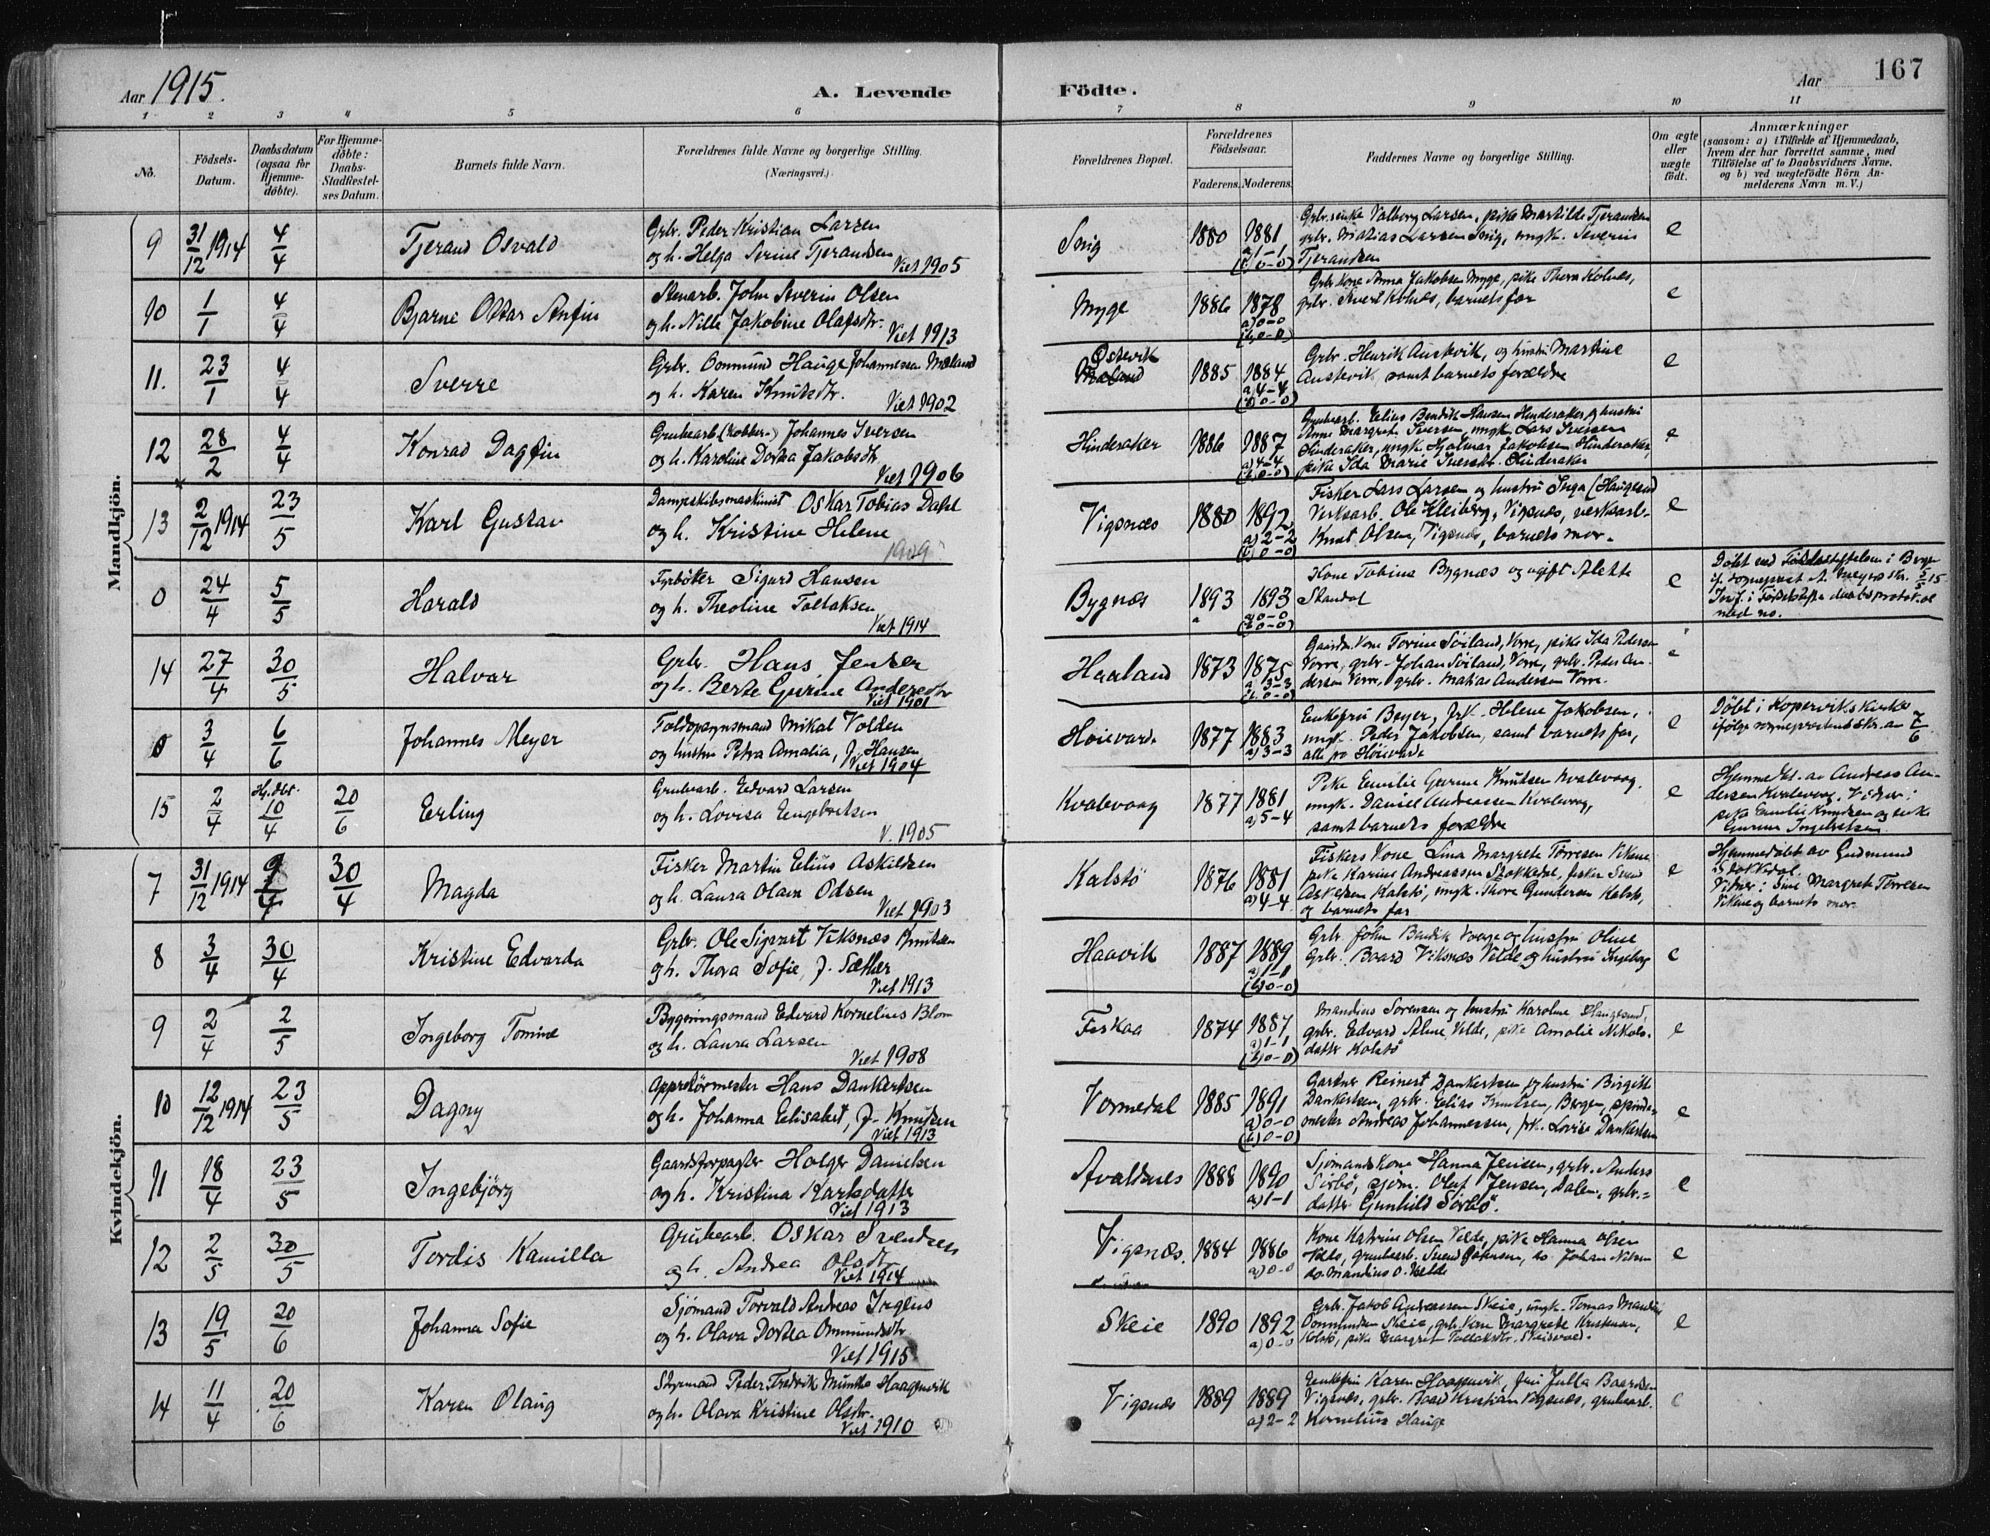 Aar 1915.
A. Levende Födte.
Aar 167
1 2 3 4 5 6 7 8 9 10 11
No.
Födsels-Datum.
Daabsdatum (ogsaa for Hjemme-döbte).
For Hjemme-döbte: Daabs-Stadfæstel-ses Datum.
Barnets fulde Navn.
Forældrenes fulde Navne og borgerlige Stilling.
(Næringsvei.)
Forældrenes Bopæl.
Forældrenes Födselsaar.
Faderens. Moderens.
Faddernes Navne og borgerlige Stilling.
Om ægte eller uægte födt.
Anmærkninger
(saasom: a) i Tilfælde af Hjemmedaab,
hvem der har forrettet samme, med
Tilföielse af to Daabsvidners Navne,
og b) ved uægtefödte Börn An-
melderens Navn m. V.)
Mandkjön.
9 31/12 1914 4/4 Tjerand Osvald Grbr. Peder Kristian Larsen
og h. Helga Serine Tjerandsen Viet 1905
Snig 1880 1881 a) 1-1 (b) 0-0)
Grbr.enke Valborg Larsen, pike Martilde Tjerandsen
grbr. Matias Larsen Snig, ungk. Severin
Tjerandsen e
10 1/1 4/4 Bjarne Ottar Anfin Stenarb. John Severin Olsen
og h. Nille Jakobine Olafsdtr. Viet 1913
Myge 1886 1878 a) 0-0 (b) 0-0)
Grbr kone Anna Jakobsen Myge, pike Thora Kolnes,
grbr. Sivert Kolnes, barnets far e
11. 23/1 4/4 Sverre Grbr. Oommund Hauge Johannessen Mæland
og h. Karen Knutsdtr. Viet 1902
Ostevik 1885 1884 a) 4-4 (b) 0-0)
Grbr. Henrik Austevik, og hustru Martine
Austevik samt barnets forældre e
12 28/2 4/4 Konrad Dagfin Grubearb. (Kobber-) Johannes Iversen
og h. Karoline Dortea Jakobsdtr. Viet 1906
Hinderaker 1886 1887 a) 4-4 (b) 0-0)
Grubearb. Elias Bendik Hansen Hinderaker og hustru
Anne Margret Iversen, ungk. Lars Iversen
Hinderaker, ungk. Hjalmar Jakobsen Hinderaker,
pike Ida Marie Iversdtr. Hinderaker e
13 2/12 1914 23/5 Karl Gustav Dampskibsmaskinist Oskar Tobias Dahl
og h. Kristine Helene 1909
Vigsnæs 1880 1892 a) 2-2 (b) 0-0)
Fisker Lars Larsen og hustru Inga (Haugesund)
Verksarb. Ole Kleiberg, Vigsnæs, verksarb.
Knut Olsen, Vigsnes, barnets mor. e
0 24/4 5/5 Harald Fyrbøter Sigurd Hansen
og h. Theoline Tollaksen Viet 1914
Bygnæs 1893 1893 a) 0-0 (b) 0-0)
Kone Tobine Bygnæs og ugift Alette
Skandal e
Døbt ved Fødselsstiftelsen i Bergen
if. sogneprest A. Meyers skr. 5/5 15.
14 27/4 30/5 Halvar Grbr. Hans Jensen
og h. Berte Gurine Andersdtr. Viet 1901
Haaland 1873 1875 a) 3-3 (b) 0-0)
Gaardm. kone Torine Søiland, Vorre, pike Ida Pedersen
Vorre, grbr. Johan Søiland, Vorre, grbr. Peder An-
dersen Vorre, grbr. Matias Andersen Vorre. e
0 3/4 6/6 Johannes Meyer Toldopsynsmand Mikal Volden
og hustru Petra Amalia, f. Hansen Viet 1904
Høievarde 1877 1883 a) 3-3
Enkefru Beyer, frk. Helene Jakobsen,
ungk. Peder Jakobsen, samt barnets far,
alle pr Høievarde e
Døbt i Kopervik kirke
ifølge sogneprestens skr. av 7/6.
15 2/4 Hj.dbt. 10/4 20/6 Erling Grubearb. Edvard Larsen
og h. Lovisa Engebretsen V. 1905
Kvalevaag 1877 1881 a) 5-4
Pike Emilie Gurine Knutsen Kvalevaag,
ungk. Daniel Andreassen Kvalevaag,
samt barnets forældre e
Hjemmedbt. av Andreas An-
dersen Kvalevaag. Vidner:
pike Emilie Knudsen og enke
Gurine Ingebretsen.
Kvindekjön.
7 31/12 1914 9/4 30/4 Magda Fisker Martin Elius Askildsen
og h. Laura Olava Odsen Viet 1903
Kalstø 1876 1881 a) 4-4
Fiskers kone Lina Margrete Torresen Vikene
pike Karine Andreassen Stokkedal, fisker Svend
Askelsen Kalstø, ungk. Thore Gundersen Kalstø,
og barnets far e
Hjemmedøbt av Gudmund
Stokkedal.
Vidner: Sine Margrete Torresen
Vikene og barnets mor.
8 3/4 30/4 Kristine Edvarda Grbr. Ole Sigvart Viksnæs Knutsen
og h. Thora Sofie, f. Sæther Viet 1913
Haavik 1887 1889 a) 1-1 (b) 0-0)
Grbr. John Bendik Vaage og hustru Oline
Grbr. Baard Viksnæs Velde og hustru Ingeborg e
9 2/4 2/5 Ingeborg Tomine Bygningsmand Edvard Kornelius Blom
og h. Laura Larsen Viet 1908
Fiskaa 1874 1887 a) 1-1 (b) 0-0)
Mandius Sorensen og hustru Karoline Haugesund,
grbr. Edvard Velde, pike Amalie Nikols-
datter Kolstø e
10 12/12 1914 23/5 Dagny Appretørmester Hans Dankertsen
og h. Johanna Elisabet, f. Knutsen Viet 1913
Vormedal 1885 1891 a) 0-0 (b) 0-0)
Gartner Reinert Dankertsen og hustru Birgitte
Dankertsen, grbr. Elias Knutsen, Bergen, spinde-
mester Andreas Johannessen, frk. Lovise Dankertsen e
11 18/4 23/5 Ingebjörg Gaardsforpagter Holger Danielsen
og h. Kristina Karlsdatter Viet 1913
Avaldsnes 1888 1890 a) 1-1
Sjømands kone Hanna Jensen, grbr. Anders
Sörbö, sjöm. Oluf Jensen, Dalen, grbr.-
datter Gunhild Sørbø. e
12 2/5 30/5 Tordis Kamilla Grubearb. Oskar Svendsen
og h. Andrea Olsdtr. Viet 1914
Vigsnæs. 1884 1886 a) 0-0
Kone Katrine Olsen Velde, pike Hanna Olsen
Velde, grubearb. Svend Johnsen, do. Johan Nilsen
do. Mandius O. Velde e
13 19/5 20/6 Johanna Sofie Sjömand Torvald Andreas
og h. Olava Dortea Ommundsdtr. Viet 1915
Skeie 1890 1892 a) 0-0
Grbr. Jakob Andreassen Skeie, ungk. Tomas Mandius
Oommundsen Skeie, grbr. kone Margrete Kristensen,
Kolstø, pike Margret Tollaksdtr. e
14 11/4 20/6 Karen Olaug Styrmand Peder Fredrik Munthe Haagenvik
og h. Olava Kristine Olsdtr. Viet 1910
Vigsnæs 1889 1889 a) 2-2
Enkefru Karen Haagenvik, fru Julla Baardsen
Vigsnæs, grbr. Baard Kristian Vigsnæs, grubearb.
Kornelius Hauge e